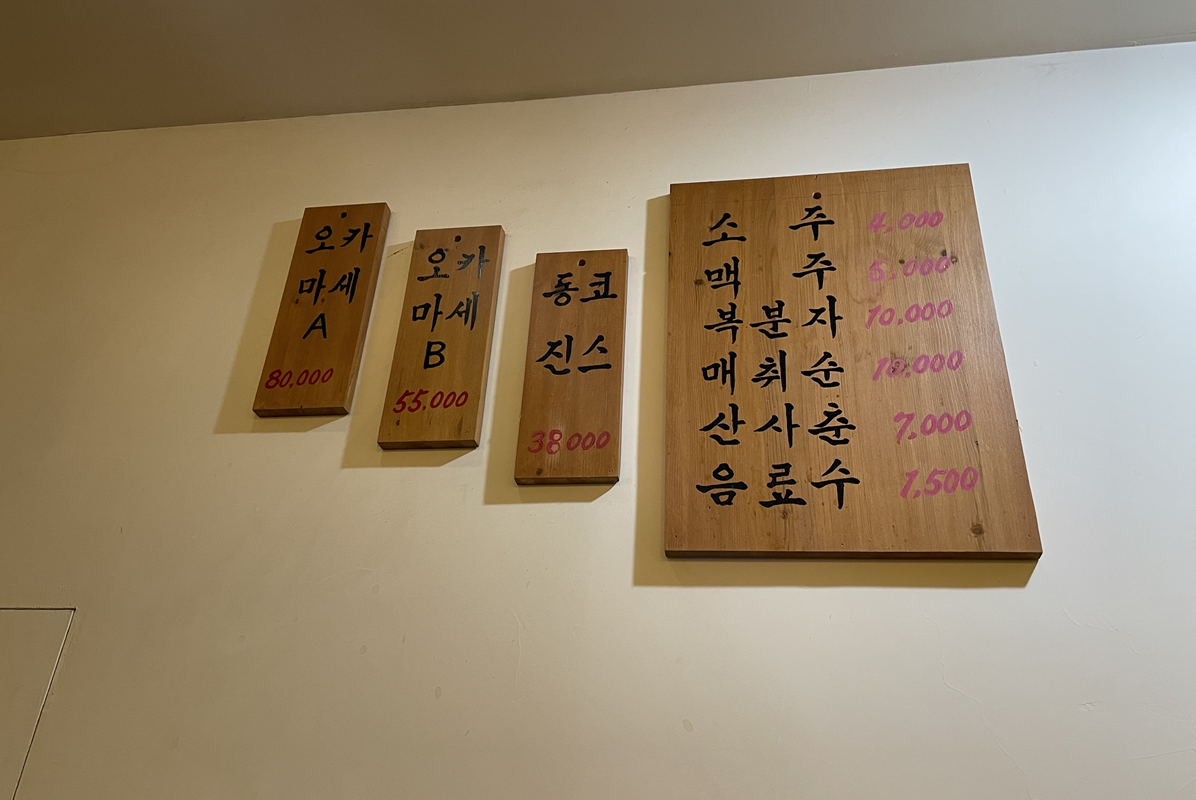 오카
마세
A
80,000
오카
마세
B
55,000
동코
진스
38000
소 주 4,000
맥 주 5,000
복분자 10,000
매취순 10,000
산사춘 7,000
음료수 1,500